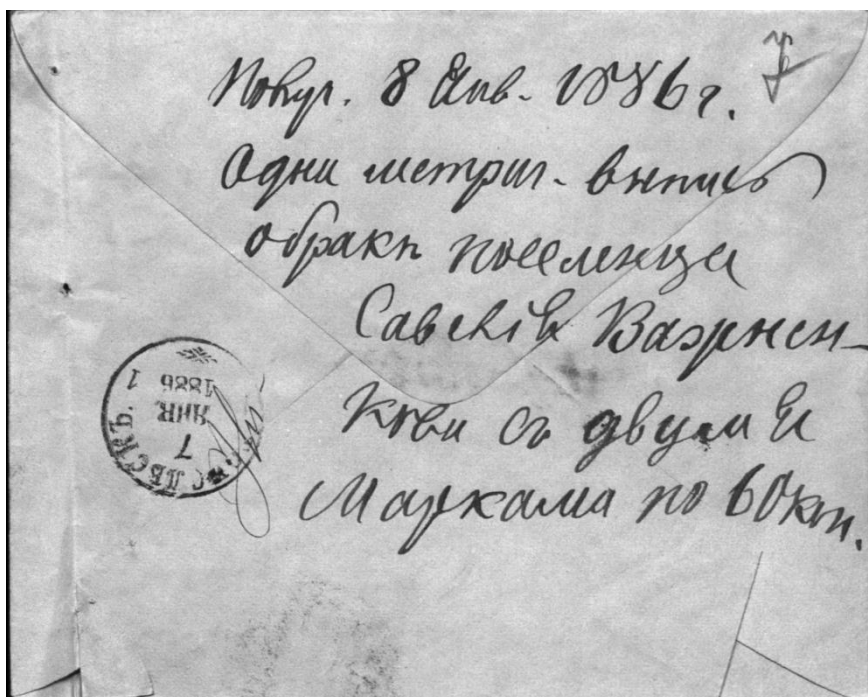 Получ. 8 Янв. 1886 г.
Одна метрич. выпись
о браке поселенца
Савелія Вахрнен-
кова съ двумя
Марками по 60 коп.
7
ЯНВ.
1886
1